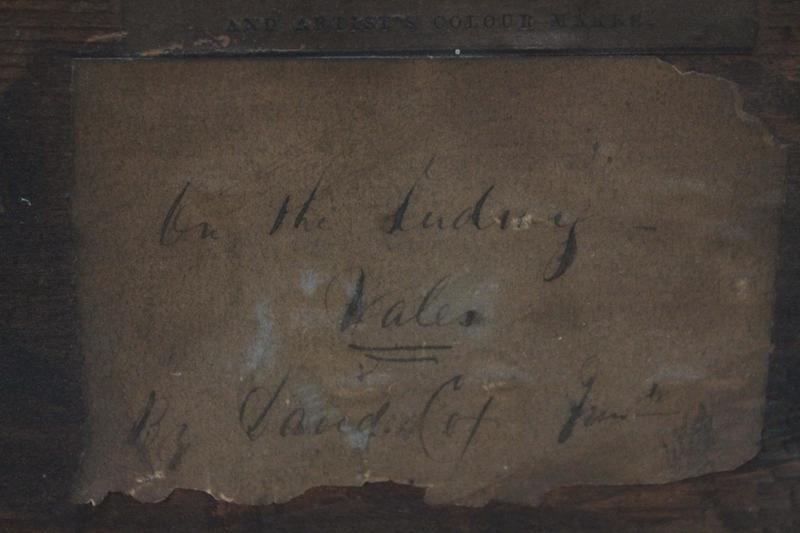 AND ARTIST'S COLOUR MAKER.
On the Ludwy —
Wales
By David Cox Junr